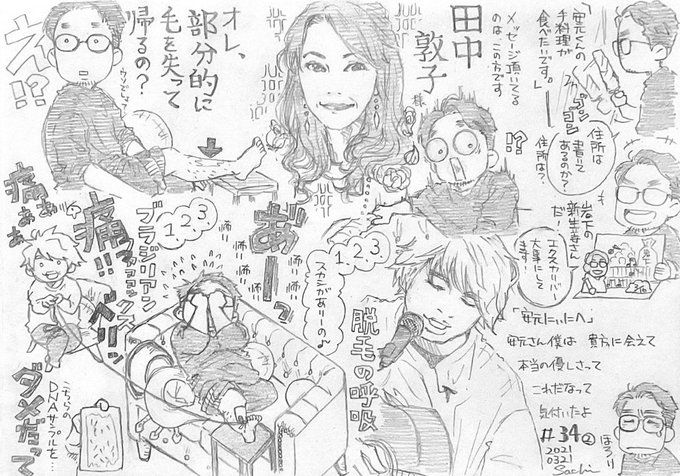 「安元くんの
手料理が
食べたいです。」
住所は
書いて
あるのか?
住所は?
田中
敦子
様
メッセージ頂いてる
のは、この方です
オレ、
部分的に
毛を失って
帰るの?
え!?
!?
岩下の
新生姜さん
だ!
エクスカリバー
大事にして
ます!
「安元にぃにへ」
安元さん僕は 貴方に会えて
本当の優しさって
これだなって
気付いたよ
ほろり
1,2,3
脱毛の呼吸
1,2,3
スカシがありーの♪
あーっ
ブラジリアン
ワックス
痛!!
ベリッ
ダメだって
こちらの
DNAサンプルを…
#34②
2021
0321
Sachi